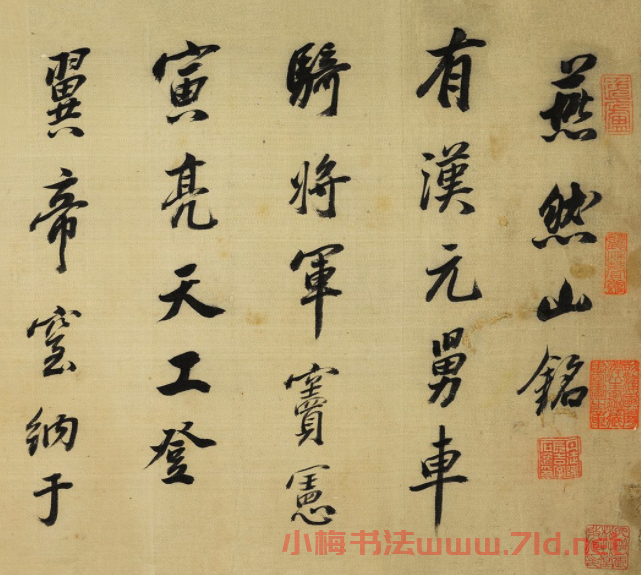 燕然山銘
有漢元舅車
騎将軍竇憲
寅亮天工登
翼帝室納于
小梅书法www.7ld.net